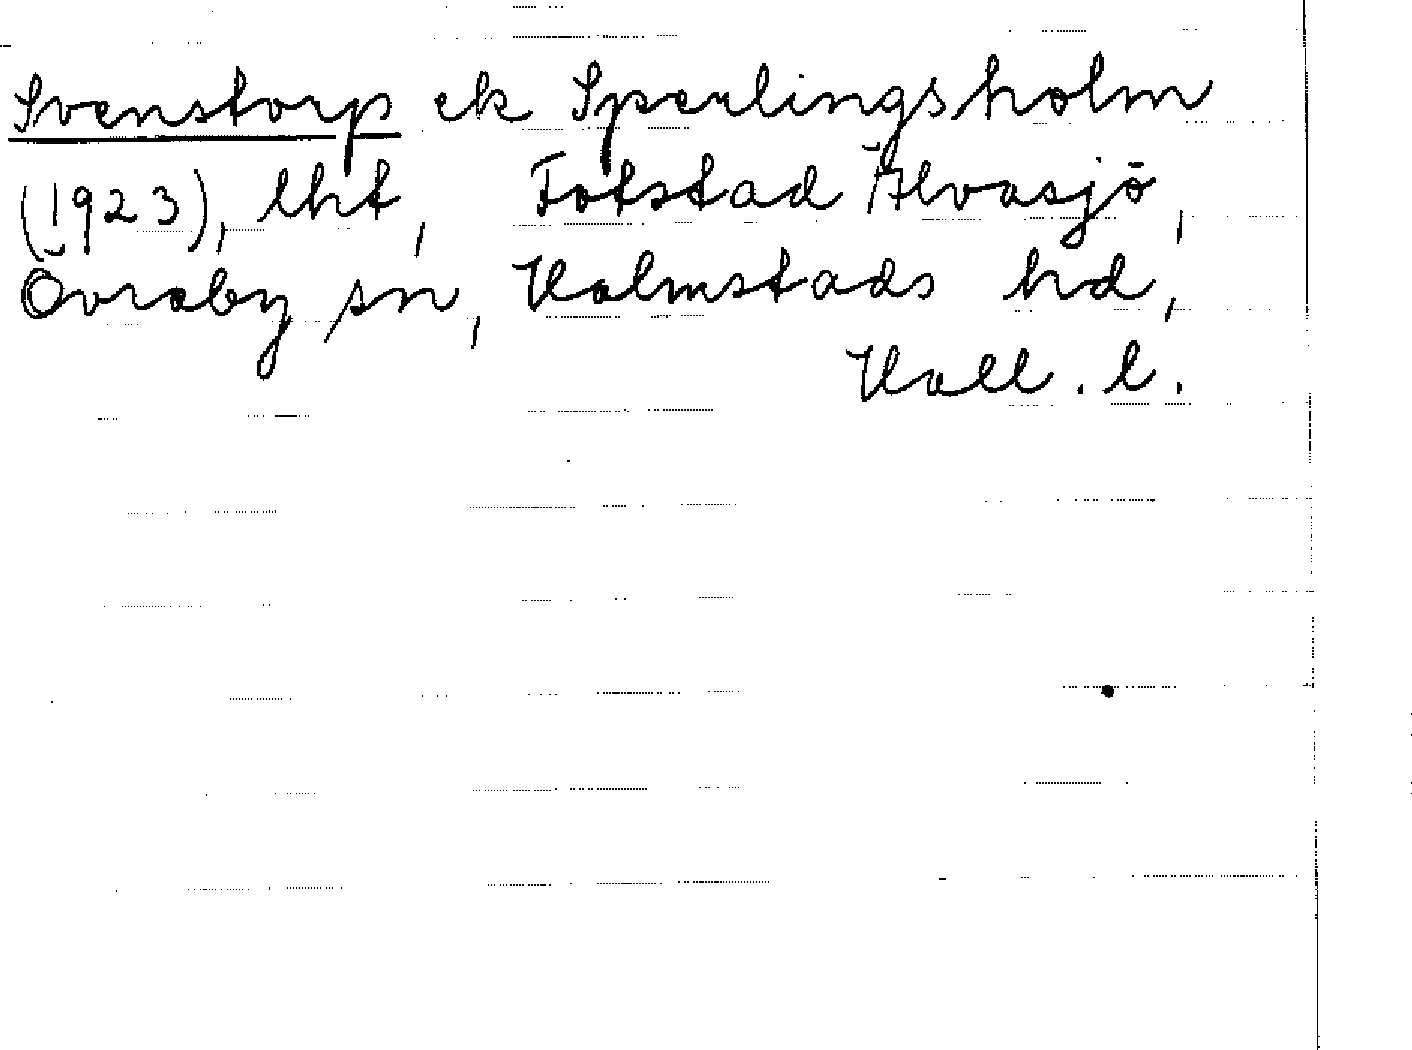 Svenstorp ek Sperlingsholm
(1923), lht, Fotstad Älvasjö,
Övraby sn, Halmstads hd,
Hall. l.